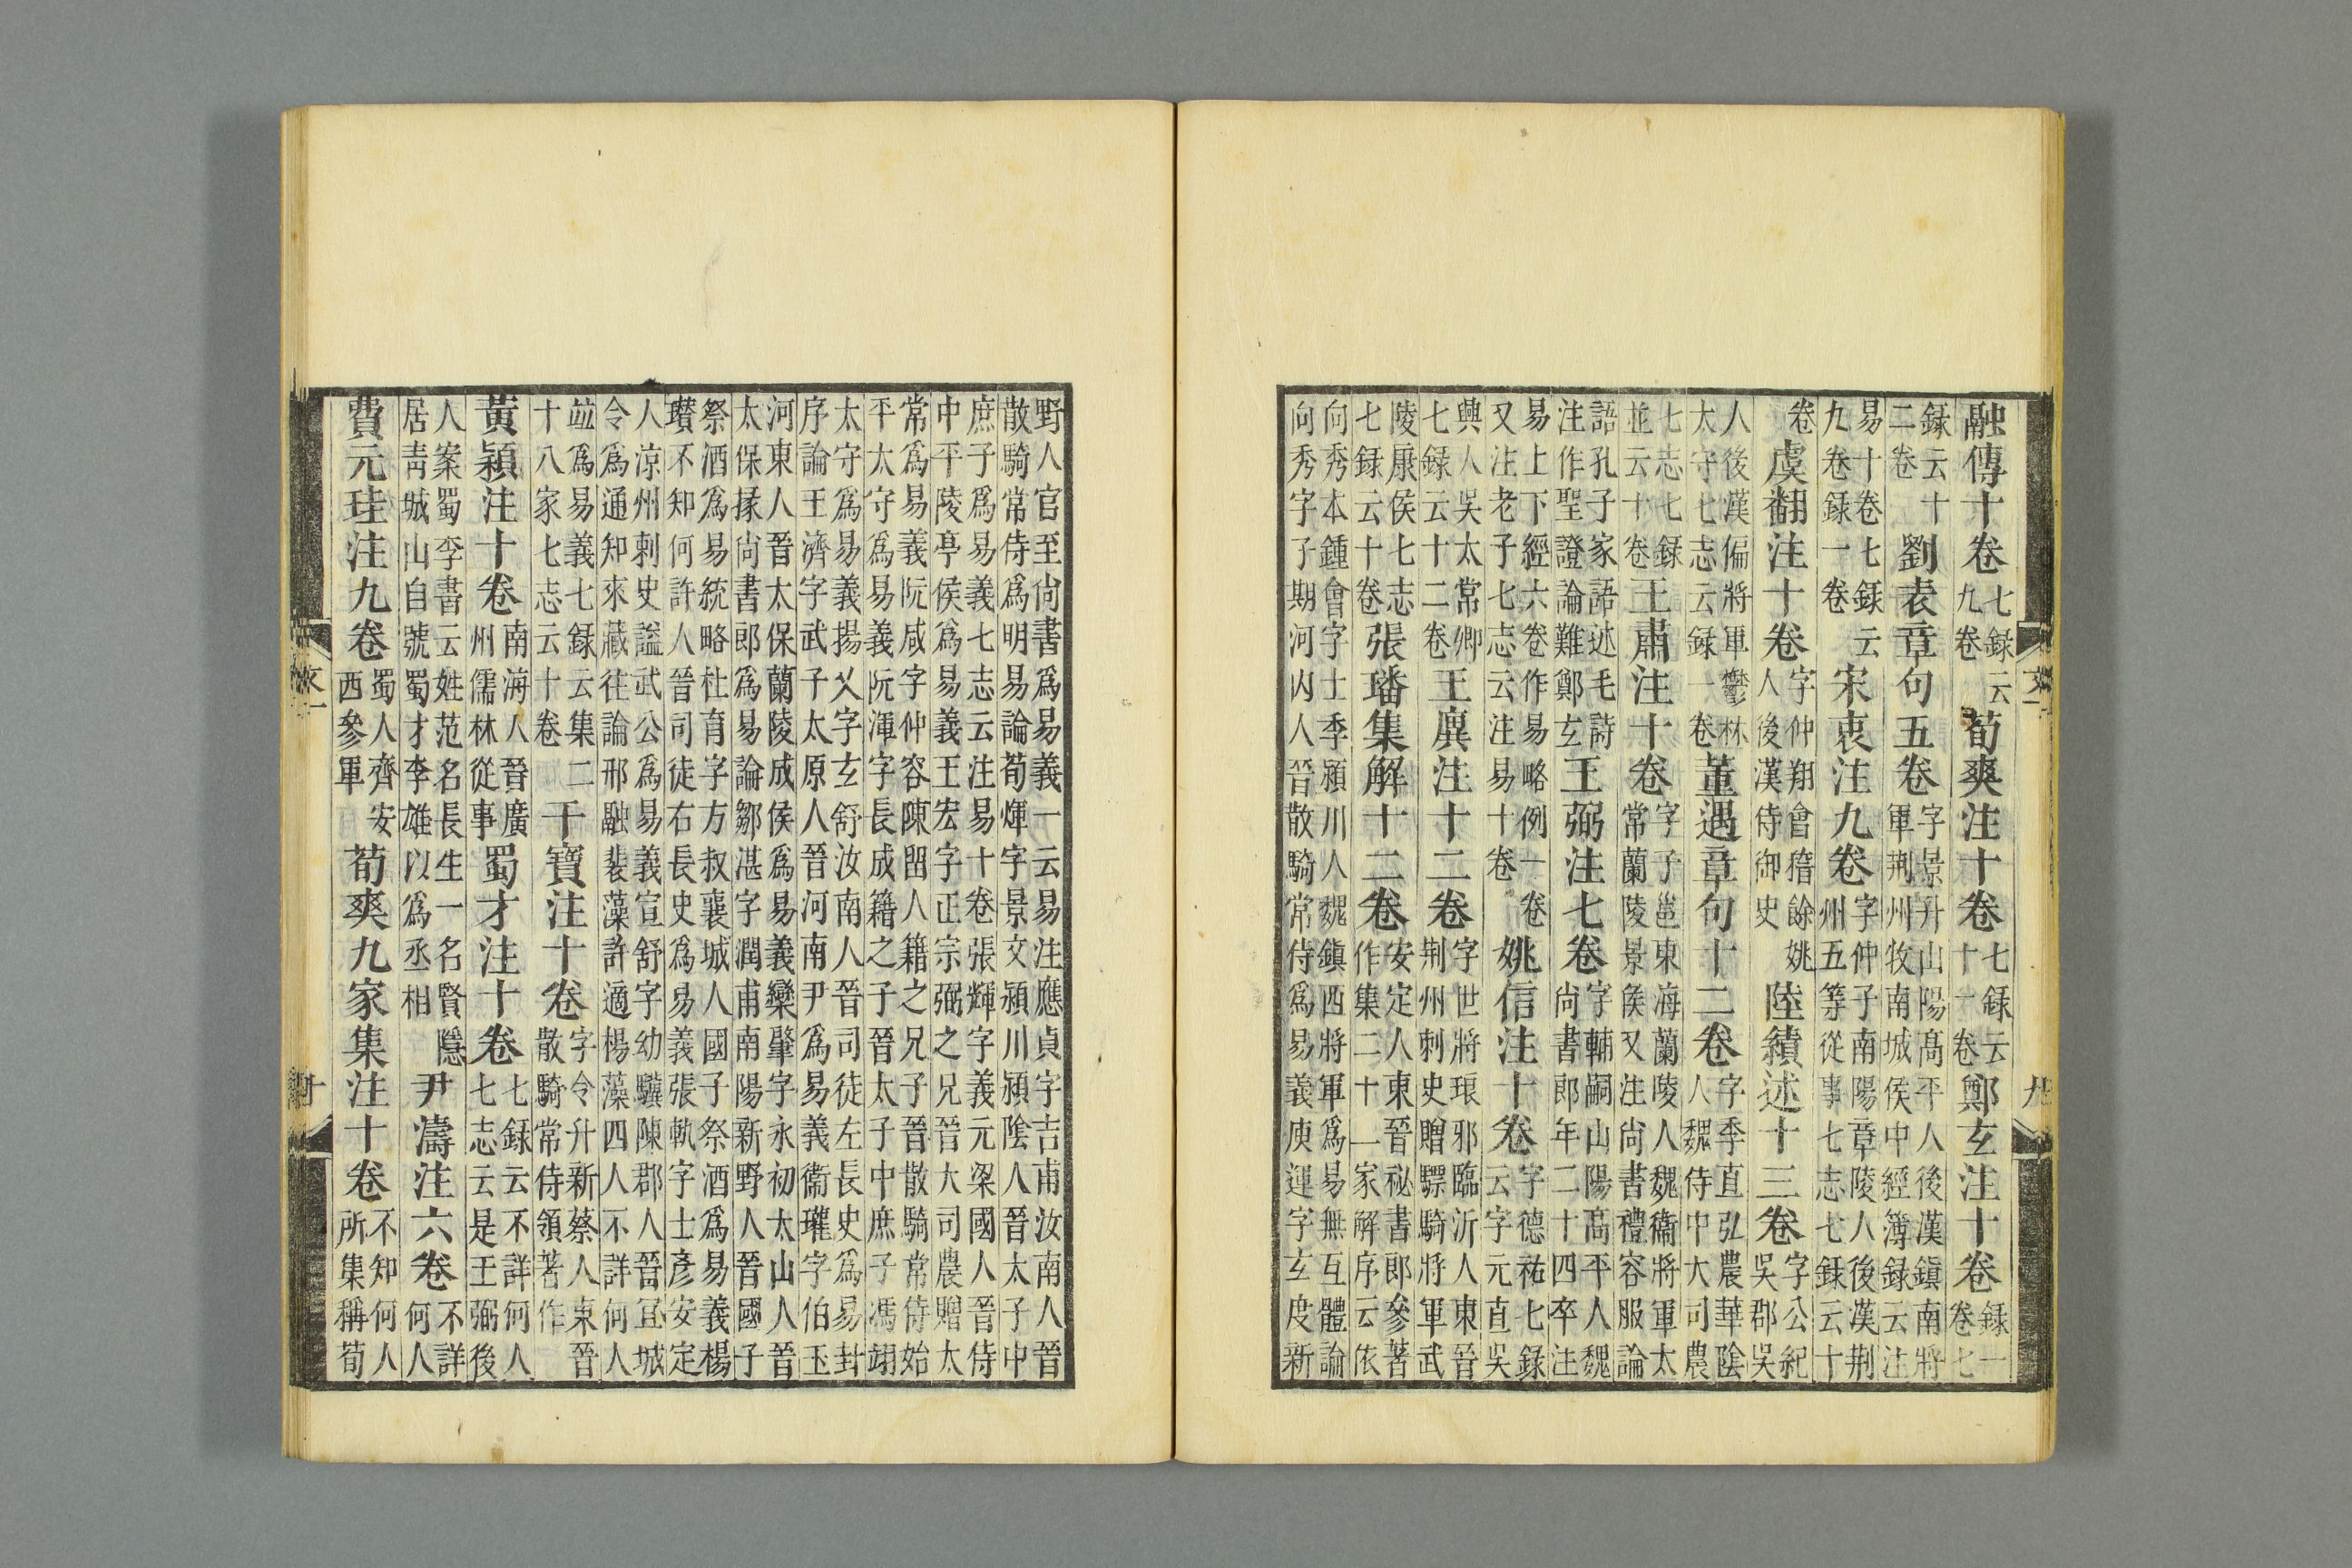 融傳十卷七錄云九卷荀爽注十卷七錄云十一卷鄭玄注十卷錄一卷七
錄云十二卷劉表章句五卷字景升山陽高平人後漢鎮南將軍荆州牧南城侯中經簿錄云注
易十卷七錄云九卷錄一卷宋衷注九卷字仲子南陽章陵人後漢荆州五等從事七志七錄云十
卷虞翻注十卷字仲翔會稽餘姚人後漢侍御史陸績述十三卷字公紀吳郡吳
人後漢偏將軍鬱林太守七志云錄一卷董遇章句十二卷字季直弘農華陰人魏侍中大司農
七志七錄並云十卷王肅注十卷字子邕東海蘭陵人魏衞將軍太常蘭陵景侯又注尚書禮容服論
語孔子家語述毛詩注作聖證論難鄭玄王弼注七卷字輔嗣山陽高平人魏尚書郎年二十四卒注
易上下經六卷作易略例一卷又注老子七志云注易十卷姚信注十卷字德祐七錄云字元直吳
興人吳太常卿七錄云十二卷王廙注十二卷字世將琅邪臨沂人東晉荆州刺史贈驃騎將軍武
陵康侯七志七錄云十卷張璠集解十二卷安定人東晉祕書郎參著作集二十一家解序云依
向秀本鍾會字士季潁川人魏鎮西將軍爲易無互體論
向秀字子期河内人晉散騎常侍爲易義庾運字玄度新
文一
九
野人官至尚書爲易義一云易注應貞字吉甫汝南人晉
散騎常侍爲明易論荀煇字景文潁川潁陰人晉太子中
庶子爲易義七志云注易十卷張輝字義元梁國人晉侍
中平陵亭侯爲易義王宏字正宗弼之兄晉大司農贈太
常爲易義阮咸字仲容陳留人籍之兄子晉散騎常侍始
平太守爲易義阮渾字長成籍之子晉太子中庶子馮翊
太守爲易義揚乂字玄舒汝南人晉司徒左長史爲易卦
序論王濟字武子太原人晉河南尹爲易義衞瓘字伯玉
河東人晉太保蘭陵成侯爲易義欒肇字永初太山人晉
太保掾尚書郎爲易論鄒湛字潤甫南陽新野人晉國子
祭酒爲易統略杜育字方叔襄城人國子祭酒爲易義楊
瓚不知何許人晉司徒右長史爲易義張軌字士彥安定
人涼州刺史謚武公爲易義宣舒字幼驥陳郡人晉宜城
令爲通知來藏往論邢融裴藻許適楊藻四人不詳何人
並爲易義七錄云集二十八家七志云十卷干寶注十卷字令升新蔡人東晉散騎常侍領著作
黃穎注十卷南海人晉廣州儒林從事蜀才注十卷七錄云不詳何人七志云是王弼後
人案蜀李書云姓范名長生一名賢隱居青城山自號蜀才李雄以爲丞相尹濤注六卷不詳何人
費元珪注九卷蜀人齊安西參軍荀爽九家集注十卷不知何人所集稱荀
文一
十